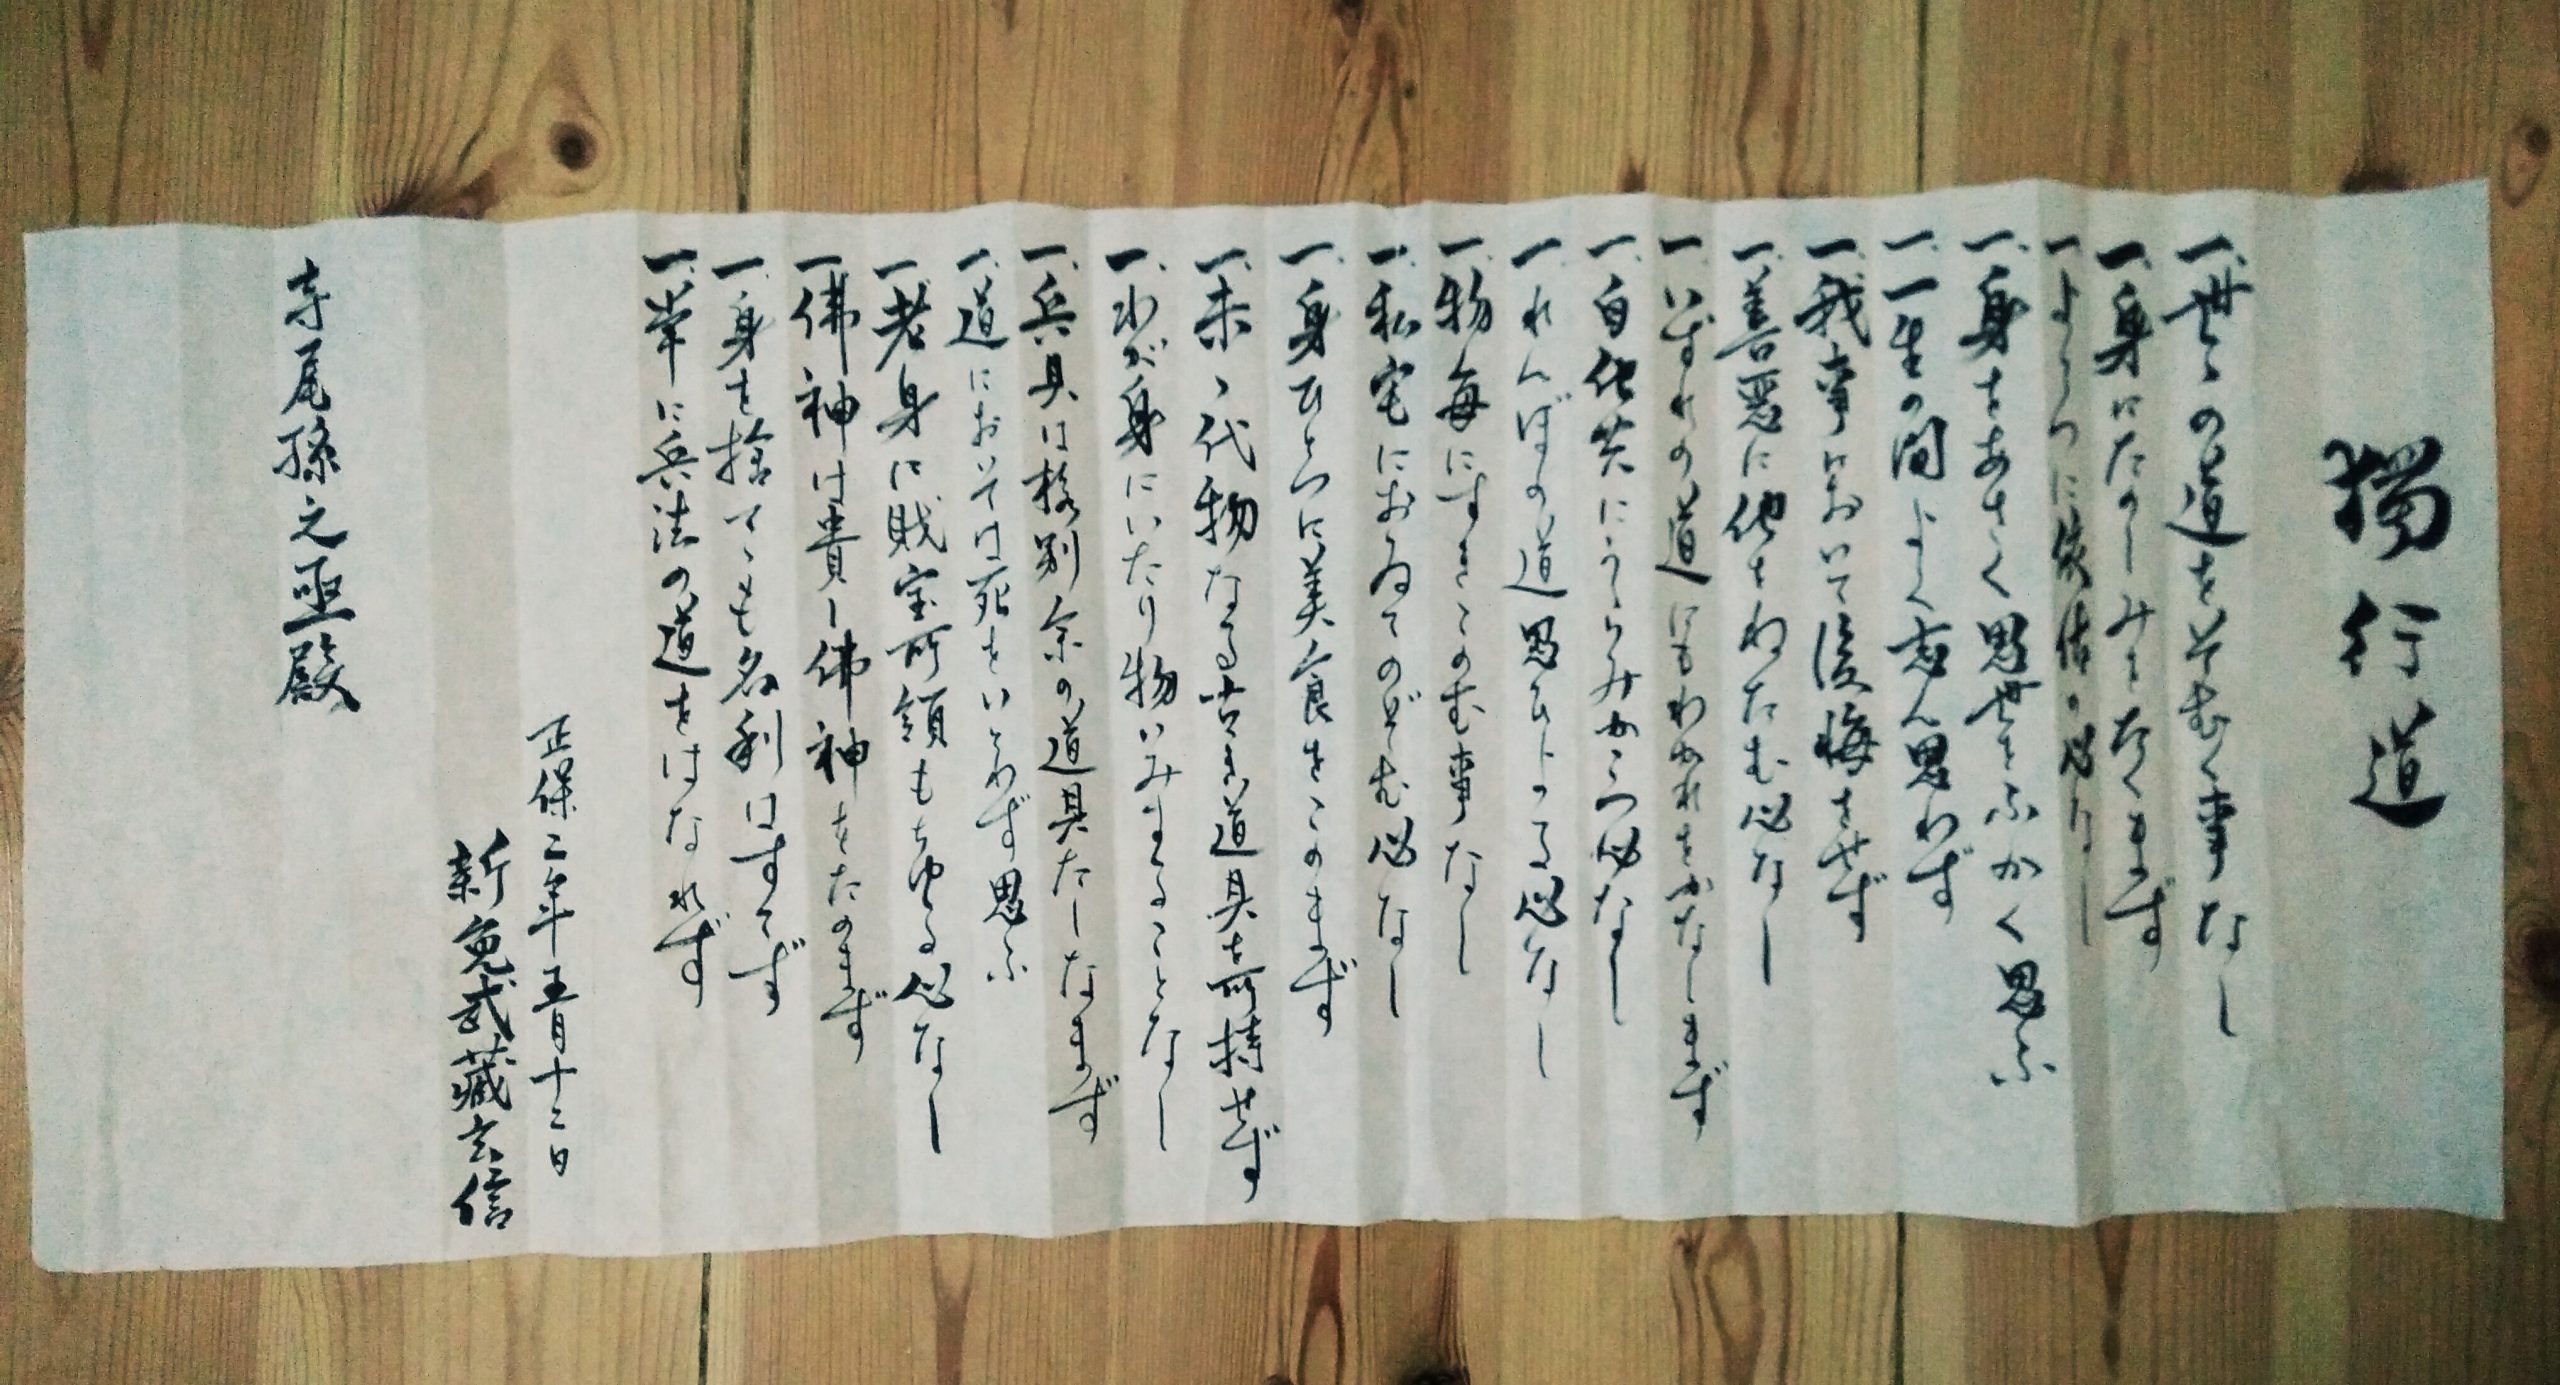 獨行道
一、世々の道をそむく事なし
一、身にたのしみをたくまず
一、よろつに依怙の心なし
一、身をあさく思世をふかく思ふ
一、一生の間よくしん思わず
一、我事において後悔をせず
一、善悪に他をねたむ心なし
一、いずれの道にもわかれをかなしまず
一、自他共にうらみかこつ心なし
一、れんぼの道思ひよる心なし
一、物毎にすきこのむ事なし
一、私宅におゐてのぞむ心なし
一、身ひとつに美食をこのまず
一、末々代物なる古き道具を所持せず
一、わが身にいたり物いみすることなし
一、兵具は格別余の道具たしなまず
一、道においては死をいとわず思ふ
一、老身に財宝所領もちゆる心なし
一、佛神は貴し佛神をたのまず
一、身を捨てゝも名利はすてず
一、常に兵法の道をはなれず
正保二年五月十二日
新免武藏玄信
寺尾孫之亟殿